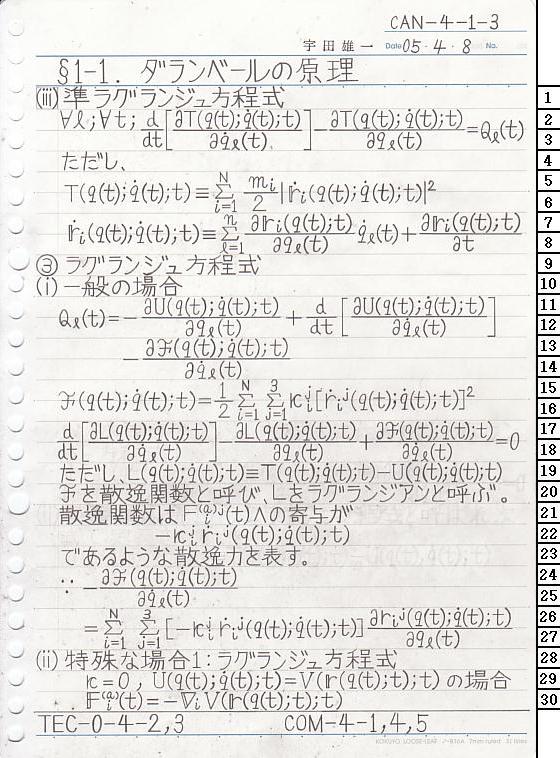 CAN-4-1-3
宇田雄一 Date 05・4・8 No.
§1-1. ダランベールの原理
(iii) 準ラグランジュ方程式
∀l;∀t; d/dt[∂T(q(t);q̇(t);t)/∂q̇l(t)]−∂T(q(t);q̇(t);t)/∂ql(t)=Ql(t)
ただし、
T(q(t);q̇(t);t)≡Σ_{i=1}^{N} mi/2|ṙi(q(t);q̇(t);t)|²
ṙi(q(t);q̇(t);t)≡Σ_{l=1}^{n} ∂ri(q(t);t)/∂ql(t) q̇l(t)+∂ri(q(t);t)/∂t
③ ラグランジュ方程式
(i) 一般の場合
Ql(t)=−∂U(q(t);q̇(t);t)/∂ql(t)+d/dt[∂U(q(t);q̇(t);t)/∂q̇l(t)]
−∂ℱ(q(t);q̇(t);t)/∂q̇l(t)
ℱ(q(t);q̇(t);t)=1/2 Σ_{i=1}^{N} Σ_{j=1}^{3} κ_i^j[ṙi^j(q(t);q̇(t);t)]²
d/dt[∂L(q(t);q̇(t);t)/∂q̇l(t)]−∂L(q(t);q̇(t);t)/∂ql(t)+∂ℱ(q(t);q̇(t);t)/∂q̇l(t)=0
ただし、L(q(t);q̇(t);t)≡T(q(t);q̇(t);t)−U(q(t);q̇(t);t)
ℱを散逸関数と呼び、Lをラグランジアンと呼ぶ。
散逸関数は F_i^{(a)j}(t)への寄与が
−κ_i^j ṙi^j(q(t);q̇(t);t)
であるような散逸力を表す。
∵ −∂ℱ(q(t);q̇(t);t)/∂q̇l(t)
=Σ_{i=1}^{N} Σ_{j=1}^{3}[−κ_i^j ṙi^j(q(t);q̇(t);t)]∂ri^j(q(t);t)/∂ql(t)
(ii) 特殊な場合1:ラグランジュ方程式
κ=0, U(q(t);q̇(t);t)=V(r(q(t);t);t) の場合
F_i^{(a)}(t)=−∇iV(r(q(t);t);t)
TEC-0-4-2,3 COM-4-1,4,5
KOKUYO LOOSE-LEAF ノ-816A 7mm ruled 31 lines
1
2
3
4
5
6
7
8
9
10
11
12
13
14
15
16
17
18
19
20
21
22
23
24
25
26
27
28
29
30